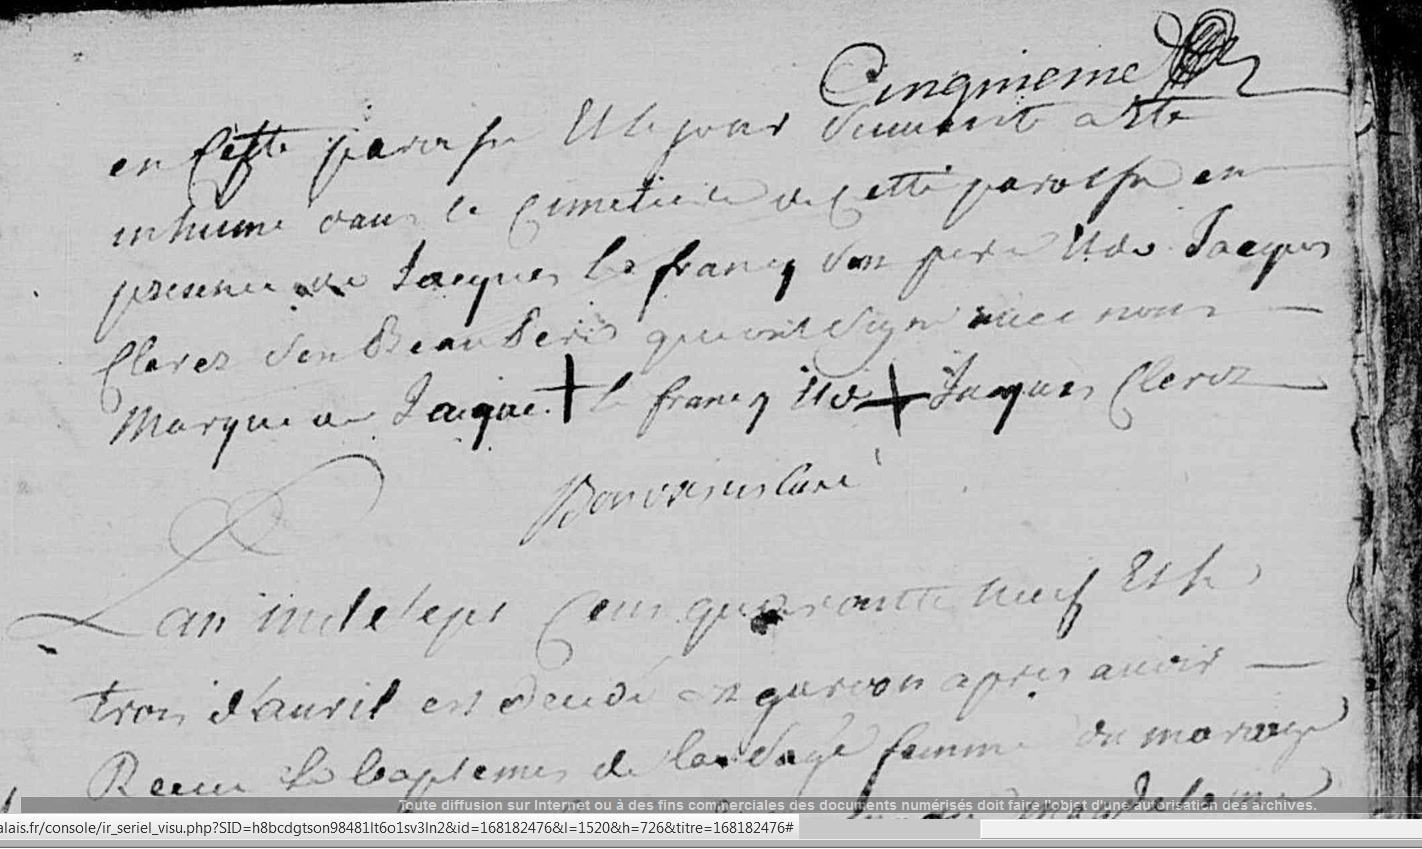 Cinqnieme
en Cette paroisse Et le jour Suivant a Ete
inhumé dans le Cimetiere de Cette paroisse en
presence de Jacques le francq Son pere Et de Jacques
Clarez Son Beau qui ont Signé avec nous
Marque de Jacque le francq Et de Jacques Clerez
Curé
L'an mil Sept Cens quarante neuf Et le
trois d'avril est decedé un garcon apres avoir
Receu le baptemes de la Sage femme du mariage
Toute diffusion sur Internet ou à des fins commerciales des documents numérisés doit faire l'objet d'une autorisation des archives.
alais.fr/console/ir_seriel_visu.php?SID=h8bcdgtson98481lt6o1sv3ln2&id=168182476&l=1520&h=726&titre=168182476#